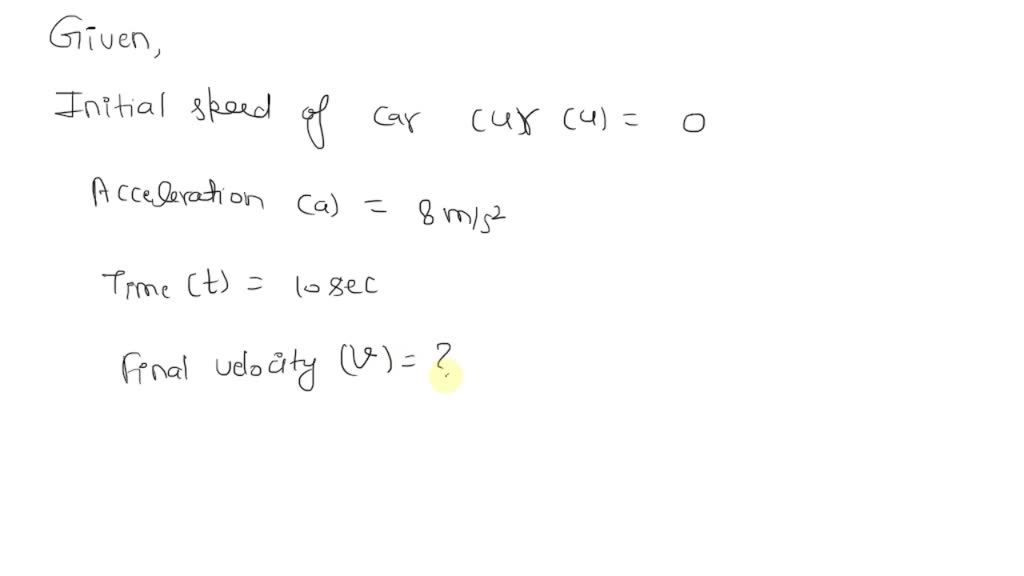 Given,
Initial speed of car (u) (u) = 0
Acceleration (a) = 8 m/s²
Time (t) = 10 sec
Final velocity (v) = ?